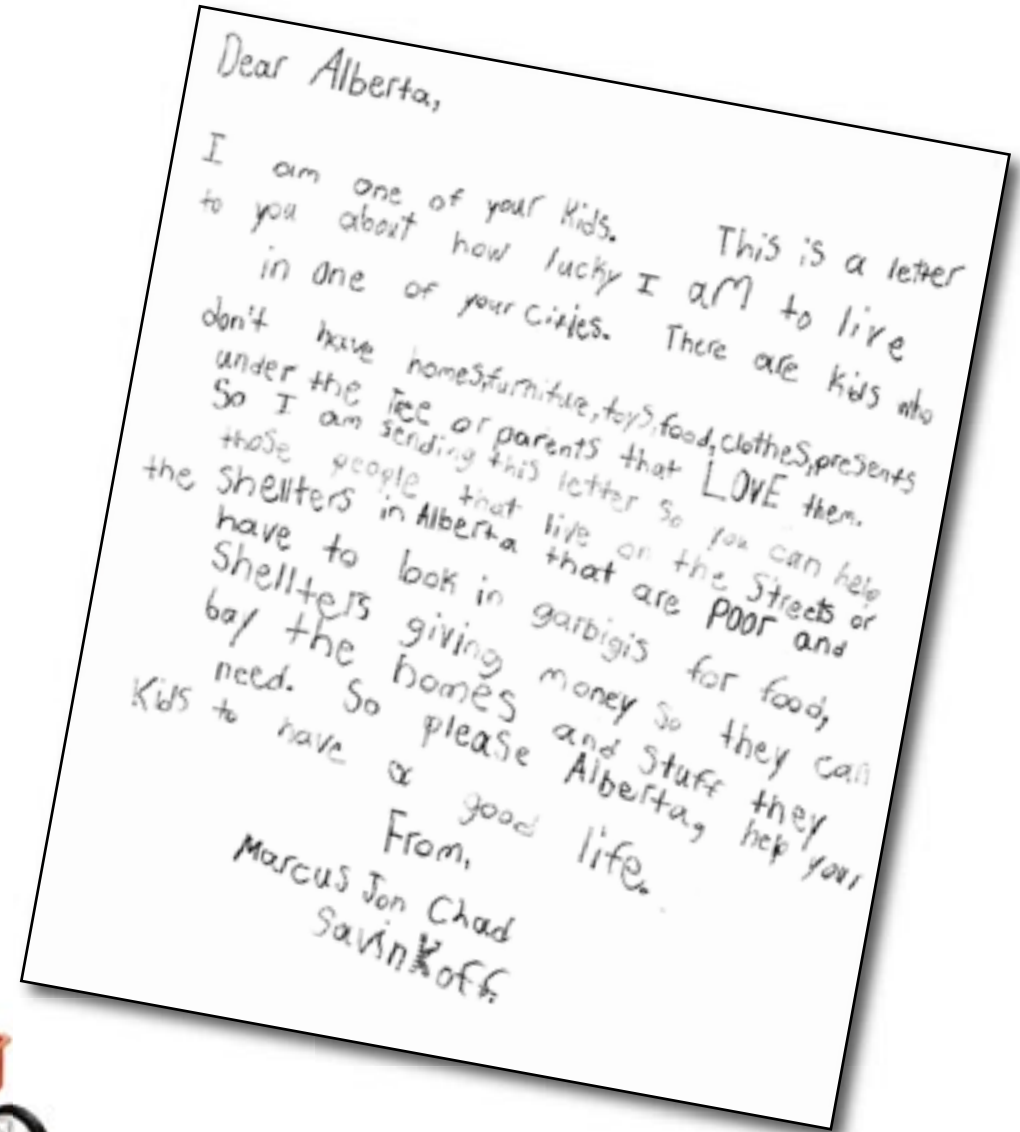 Dear Alberta,
I am one of your kids. This is a letter
to you about how lucky I aM to live
in one of your cities. There are kids who
don't have homes,furniture,toys,food,clothes,presents
under the Tree or parents that LOVE them.
So I am sending this letter so you can help
those people that live on the Streets or
the Shellters in Alberta that are POOr and
have to look in garbigis for food,
Shellters giving money so they can
bay the homes and Stuff they
need. So please Alberta, help your
Kids to have a good life.
From,
Marcus Jon Chad
SavinKoff.